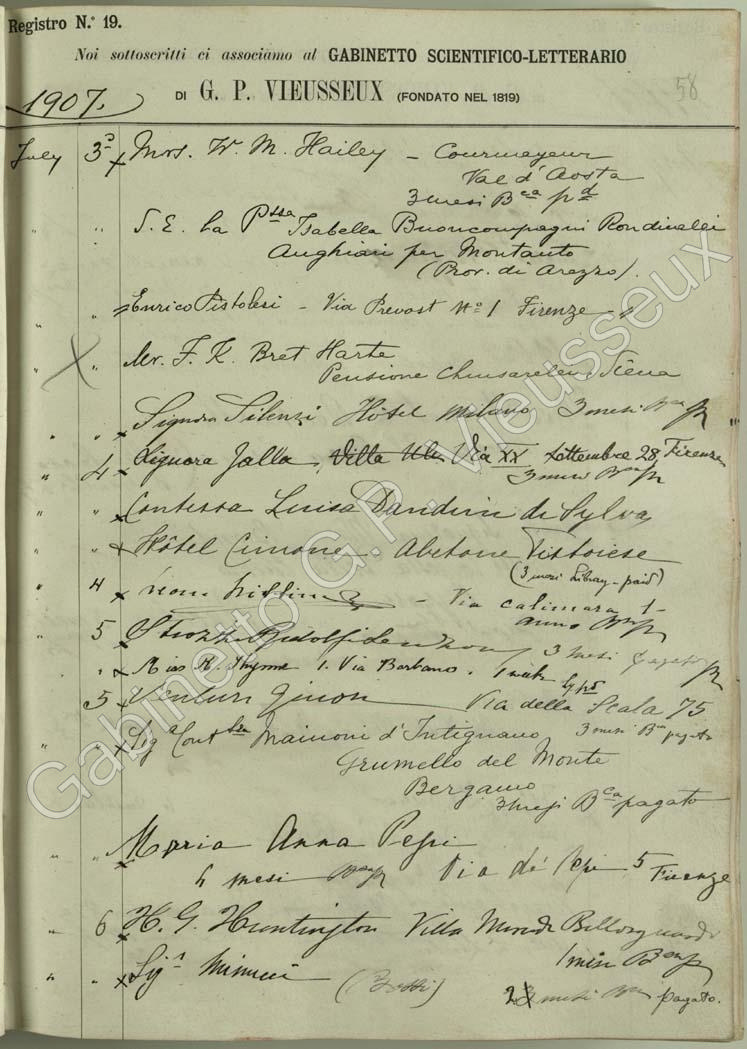 Registro N.º 19.
Noi sottoscritti ci associamo al GABINETTO SCIENTIFICO-LETTERARIO
DI G. P. VIEUSSEUX (FONDATO NEL 1819)
58
1907.
July 3 x Mrs. W. M. Hailey – Courmayeur
Val d'Aosta
3 mesi Bca pd
" " S. E. la Pssa Isabella Buoncompagni Rondinelli
Anghiari per Montauto
(Prov. di Arezzo).
" " Enrico Pistolesi – Via Prevost Nº 1 Firenze –
" Mr. F. K. Bret Harte
Pensione Chiusarelli Siena
" " x Signora Silenzi Hôtel Milano 3 mesi
" 4 x Signora Jalla, Villa Via XX Settembre 28, Firenze
3 mesi
" " x Contessa Luisa Dandini de Sylva
" " x Hôtel Cimone Abetone Pistoiese
(3 mesi Library – paid)
" 4 x – Via Calimara 1 –
anno
" 5 x Strozzi 3 mesi pagato
" " x Miss K. Thynne 1. Via Barbano.
5 x Venturi Ginori Via della Scala 75
" " x Sigª Contssa Mainoni d'Intignano 3 mesi pagato
Grumello del Monte
Bergamo
3 mesi Bca pagato
" " x Maria Anna Pepi
mesi Via de' Pepi 5 Firenze
" 6 x H. G. Huntington Villa Bellosguardo
1 mese
" " x Sigª Minucci
3 mesi pagato.
Gabinetto G. P. Vieusseux